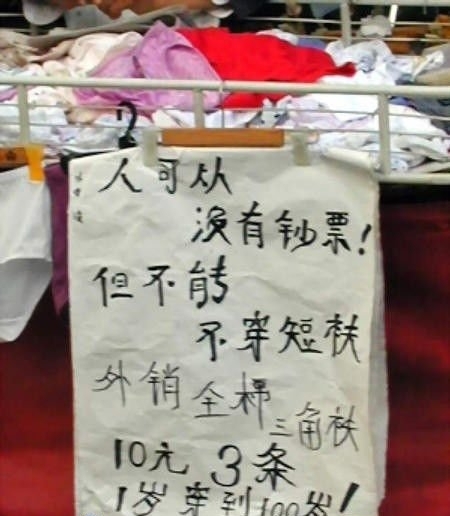 人可从
没有钞票!
但不能
不穿短袂
外销全棉
三角袂
10元 3条
1岁穿到100岁!